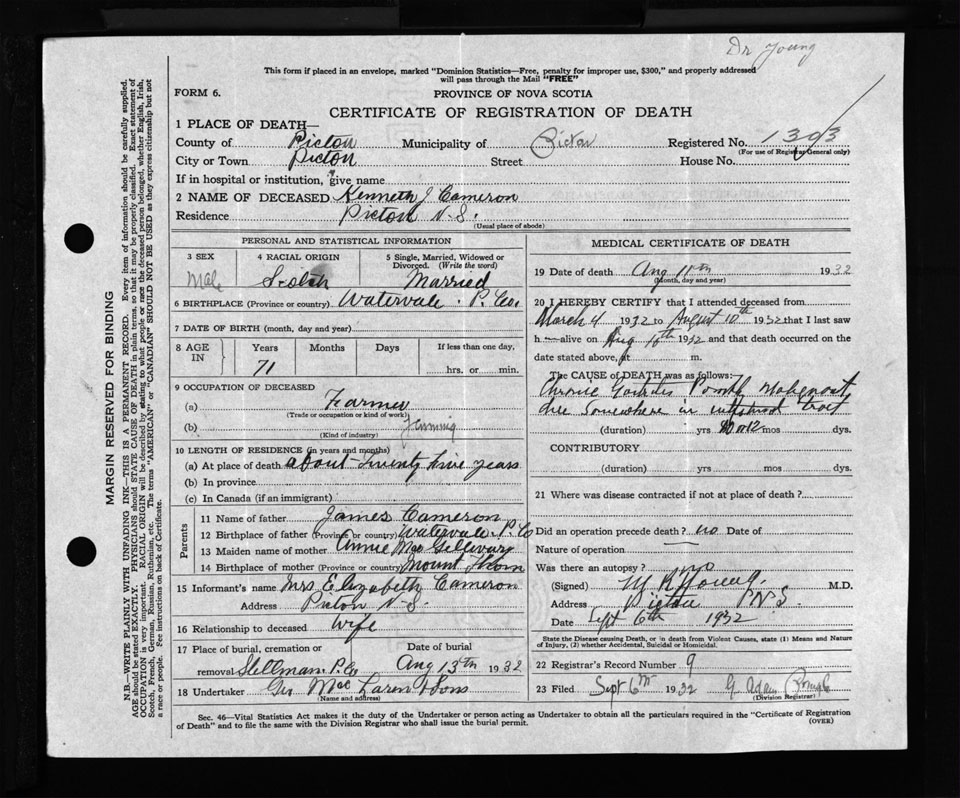 Dr Young
This form if placed in an envelope, marked "Dominion Statistics—Free, penalty for improper use, $300," and properly addressed
will pass through the Mail "FREE"
FORM 6.
PROVINCE OF NOVA SCOTIA
CERTIFICATE OF REGISTRATION OF DEATH
1 PLACE OF DEATH—
County of Pictou Municipality of Pictou Registered No. 1393
(For use of Registrar General only)
City or Town Pictou Street House No.
If in hospital or institution, give name
2 NAME OF DECEASED Kenneth J Cameron
Residence Pictou N.S.
(Usual place of abode)
PERSONAL AND STATISTICAL INFORMATION
3 SEX 4 RACIAL ORIGIN 5 Single, Married, Widowed or Divorced. (Write the word)
Male Scotch Married
6 BIRTHPLACE (Province or country) Watervale. P. Co.
7 DATE OF BIRTH (month, day and year)
8 AGE IN Years Months Days If less than one day,
71 hrs. or min.
9 OCCUPATION OF DECEASED
(a) Farmer
(Trade or occupation or kind of work)
(b) Farming
(Kind of industry)
10 LENGTH OF RESIDENCE (in years and months)
(a) At place of death about twenty five years
(b) In province
(c) In Canada (if an immigrant)
Parents
11 Name of father James Cameron
12 Birthplace of father (Province or country) Watervale P. Co
13 Maiden name of mother Annie MacGillivary
14 Birthplace of mother (Province or country) Mount Thom
15 Informant's name Mrs Elizabeth Cameron
Address Pictou N.S.
16 Relationship to deceased Wife
17 Place of burial, cremation or removal Date of burial
P. Co Aug 13th 1932
18 Undertaker Mac Laren & Sons
Name and address)
MEDICAL CERTIFICATE OF DEATH
19 Date of death Aug 11th 1932
(Month, day and year)
20 I HEREBY CERTIFY that I attended deceased from
March 4 1932 to August 10th 1932 that I last saw
h alive on Aug 10th 1932 and that death occurred on the
date stated above, at m.
The CAUSE OF DEATH was as follows:
Chronic
Somewhere in tract
(duration) yrs mos dys.
CONTRIBUTORY
(duration) yrs mos dys.
21 Where was disease contracted if not at place of death?
Did an operation precede death? no Date of
Nature of operation
Was there an autopsy? no
(Signed) M R Young. M.D.
Address Pictou N.S.
Date Sept 6th 1932
State the Disease causing Death, or in death from Violent Causes, state (1) Means and Nature
of Injury, (2) whether Accidental, Suicidal or Homicidal.
22 Registrar's Record Number 9
23 Filed Sept 6th 1932 G Adam
(Division Registrar)
Sec. 46—Vital Statistics Act makes it the duty of the Undertaker or person acting as Undertaker to obtain all the particulars required in the "Certificate of Registration
of Death" and to file the same with the Division Registrar who shall issue the burial permit.
(OVER)
MARGIN RESERVED FOR BINDING
N.B.—WRITE PLAINLY WITH UNFADING INK—THIS IS A PERMANENT RECORD. Every item of information should be carefully supplied.
AGE should be stated EXACTLY. PHYSICIANS should STATE CAUSE OF DEATH in plain terms, so that it may be properly classified. Exact statement of
OCCUPATION is very important. RACIAL ORIGIN will be described by stating to what people or race the deceased person belonged, whether English, Irish,
Scotch, French, German, Russian, Ruthenian, etc. The terms "AMERICAN" or "CANADIAN" SHOULD NOT BE USED as they express citizenship but not
a race or people. Fee instructions on back of Certificate.